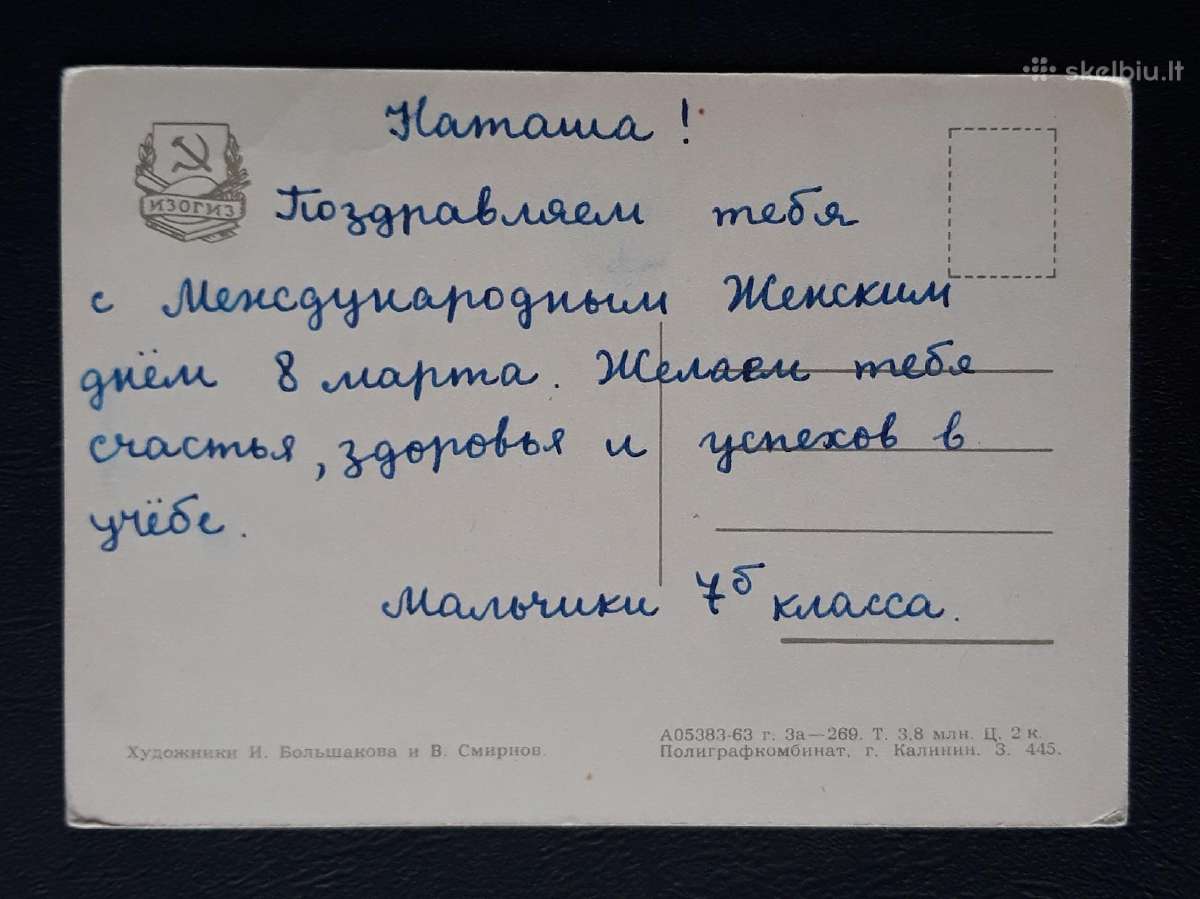 skelbiu.lt
Наташа!
ИЗОГИЗ
Поздравляем тебя
с Международным Женским
днём 8 марта. Желаем тебя
счастья, здоровья и успехов в
учёбе.
Мальчики 7б класса.
Художники И. Большакова и В. Смирнов.
А05383-63 г. За—269. Т. 3,8 млн. Ц. 2 к.
Полиграфкомбинат, г. Калинин. З. 445.